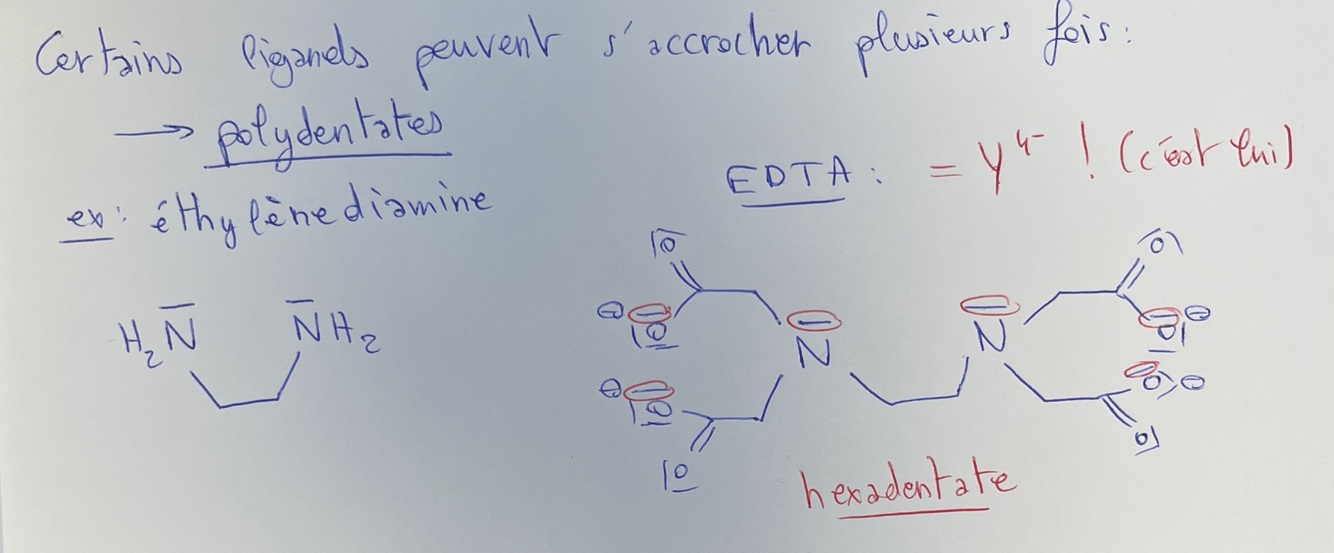 Certains ligands peuvent s'accrocher plusieurs fois :
→ polydentates
ex : éthylènediamine
EDTA : = Y⁴⁻ ! (c'est lui)
H₂N NH₂
O O
⊖ O N N O ⊖
⊖ O O ⊖
O O
hexadentate